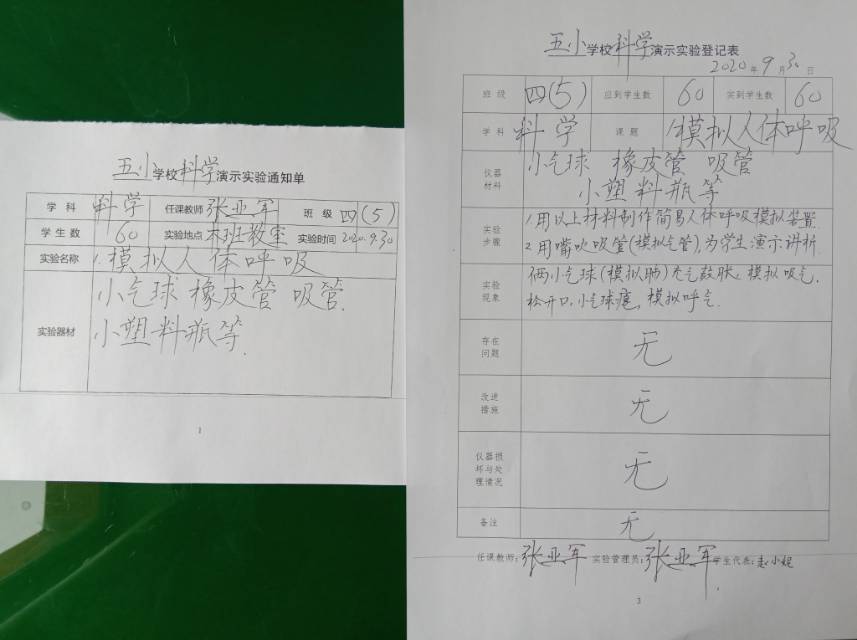 五小学校科学演示实验通知单
学科 科学 任课教师 张亚军 班级 四(5)
学生数 60 实验地点 本班教室 实验时间 2020.9.30
实验名称 1.模拟人体呼吸
实验器材 小气球 橡皮管 吸管
小塑料瓶等.
1
五小学校科学演示实验登记表
2020年9月30日
班级 四(5) 应到学生数 60 实到学生数 60
学科 科学 课题 1.模拟人体呼吸
仪器材料 小气球 橡皮管 吸管
小塑料瓶等
实验步骤 1.用以上材料制作简易人体呼吸模拟装置.
2.用嘴吹吸管(模拟气管),为学生演示讲析.
实验现象 俩小气球(模拟肺)充气鼓胀,模拟吸气,
松开口,小气球瘪,模拟呼气.
存在问题 无
改进措施 无
仪器损坏与处理情况 无
备注 无
任课教师:张亚军 实验管理员:张亚军 学生代表:赵小妮
3